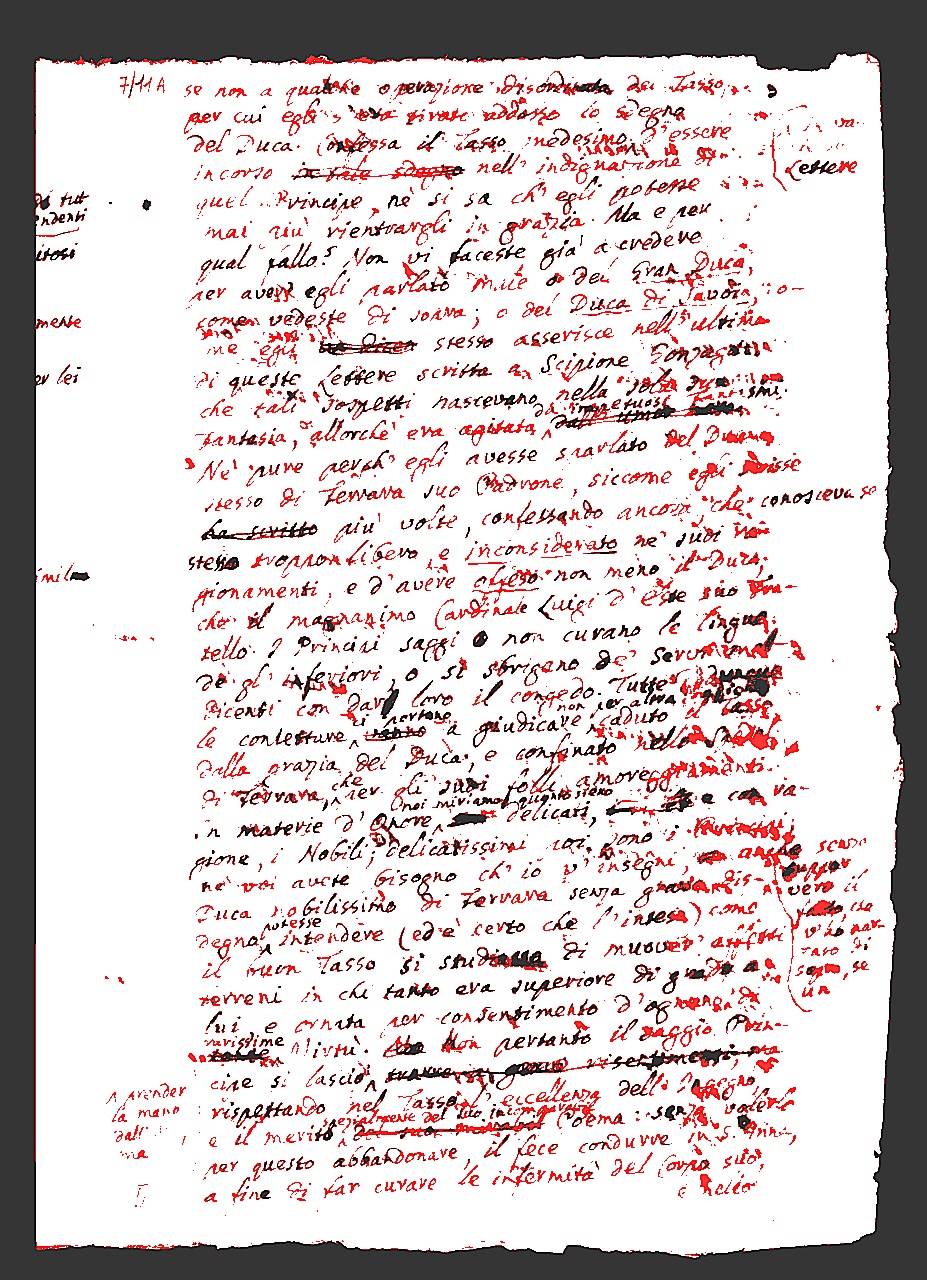 7/11A
se non a qualche operazione disordinata del Tasso,
per cui egli s'era tirato addosso lo sdegno
del Duca. Confessa il Tasso medesimo d'essere
incorso in tale sdegno nell' indignazione di
quel Principe, nè si sa ch' egli potesse
mai più rientrargli in grazia. Ma e per
qual fallo? Non vi faceste già a credere
per aver egli parlato male o del Gran Duca,
come vedeste di sopra; o del Duca di Savoia, o-
me egli stesso asserisce nell' ultima
di queste Lettere scritta a Scipione Gonzaga
che tali sospetti nascevano nella sola sua
fantasia, allorchè era agitata da impetuosi fantasmi.
Nè pure perch' egli avesse sparlato del Duca
stesso di Ferrara suo Padrone, siccome egli scrisse
ha scritto più volte, confessando ancora, che conosceva se
stesso troppo libero, e inconsiderato ne' suoi ra-
gionamenti, e d'avere offeso non meno il Duca,
che il magnanimo Cardinale Luigi d'Este suo Fra-
tello. I Principi saggi o non curano le lingue
de gl' inferiori, o si sbrigano de' servi
dicenti con dar loro il congedo. Tutte dunque
le conietture ci portano a giudicare non per altra cagione caduto il Tasso
dalla grazia del Duca, e confinato nello Spedal
di Ferrara, che per gli suoi folli amoreggiamenti.
In materie d'Onore noi miriamo quanto sieno delicati, e con ra-
gione, i Nobili; delicatissimi poi sono i Principi;
nè voi avete bisogno ch' io v'insegni, se anche
Duca nobilissimo di Ferrara senza grave dis-
degno potesse intendere (ed è certo che l'intese) come
il buon Tasso si studiava di muover affetti
terreni in chi tanto era superiore di grado a
lui e ornata per consentimento d'ognuno di
rarissime Virtù. Non pertanto il saggio Prin-
cipe si lasciò
rispettando nel Tasso l'eccellenza dell' Ingegno,
e il merito specialmente del suo incomparabile Poema: senza volerlo
per questo abbandonare, il fece condurre in S. Anna,
a fine di far curare le infermità del Corpo suo,
e nello
Lettere
di tut
endenti
itosi
mente
er lei
imile
senza
saper
vero il
fatto, che
v'ho nar-
rato di
sopra, se
un
a prender
la mano
dall'
ma